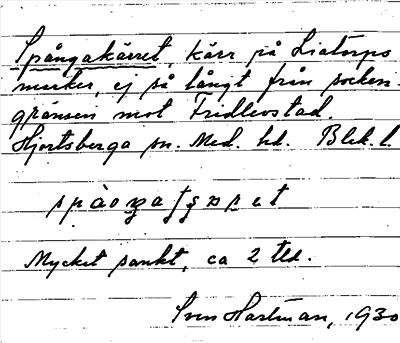 Spångakärret, kärr på Liatorps
marker, ej så långt från socken-
gränsen mot Fridlevstad.
Hjortsberga sn. Med. hd. Blek. l.
Mycket sankt, ca 2 tld.
Sven Hartman, 1930